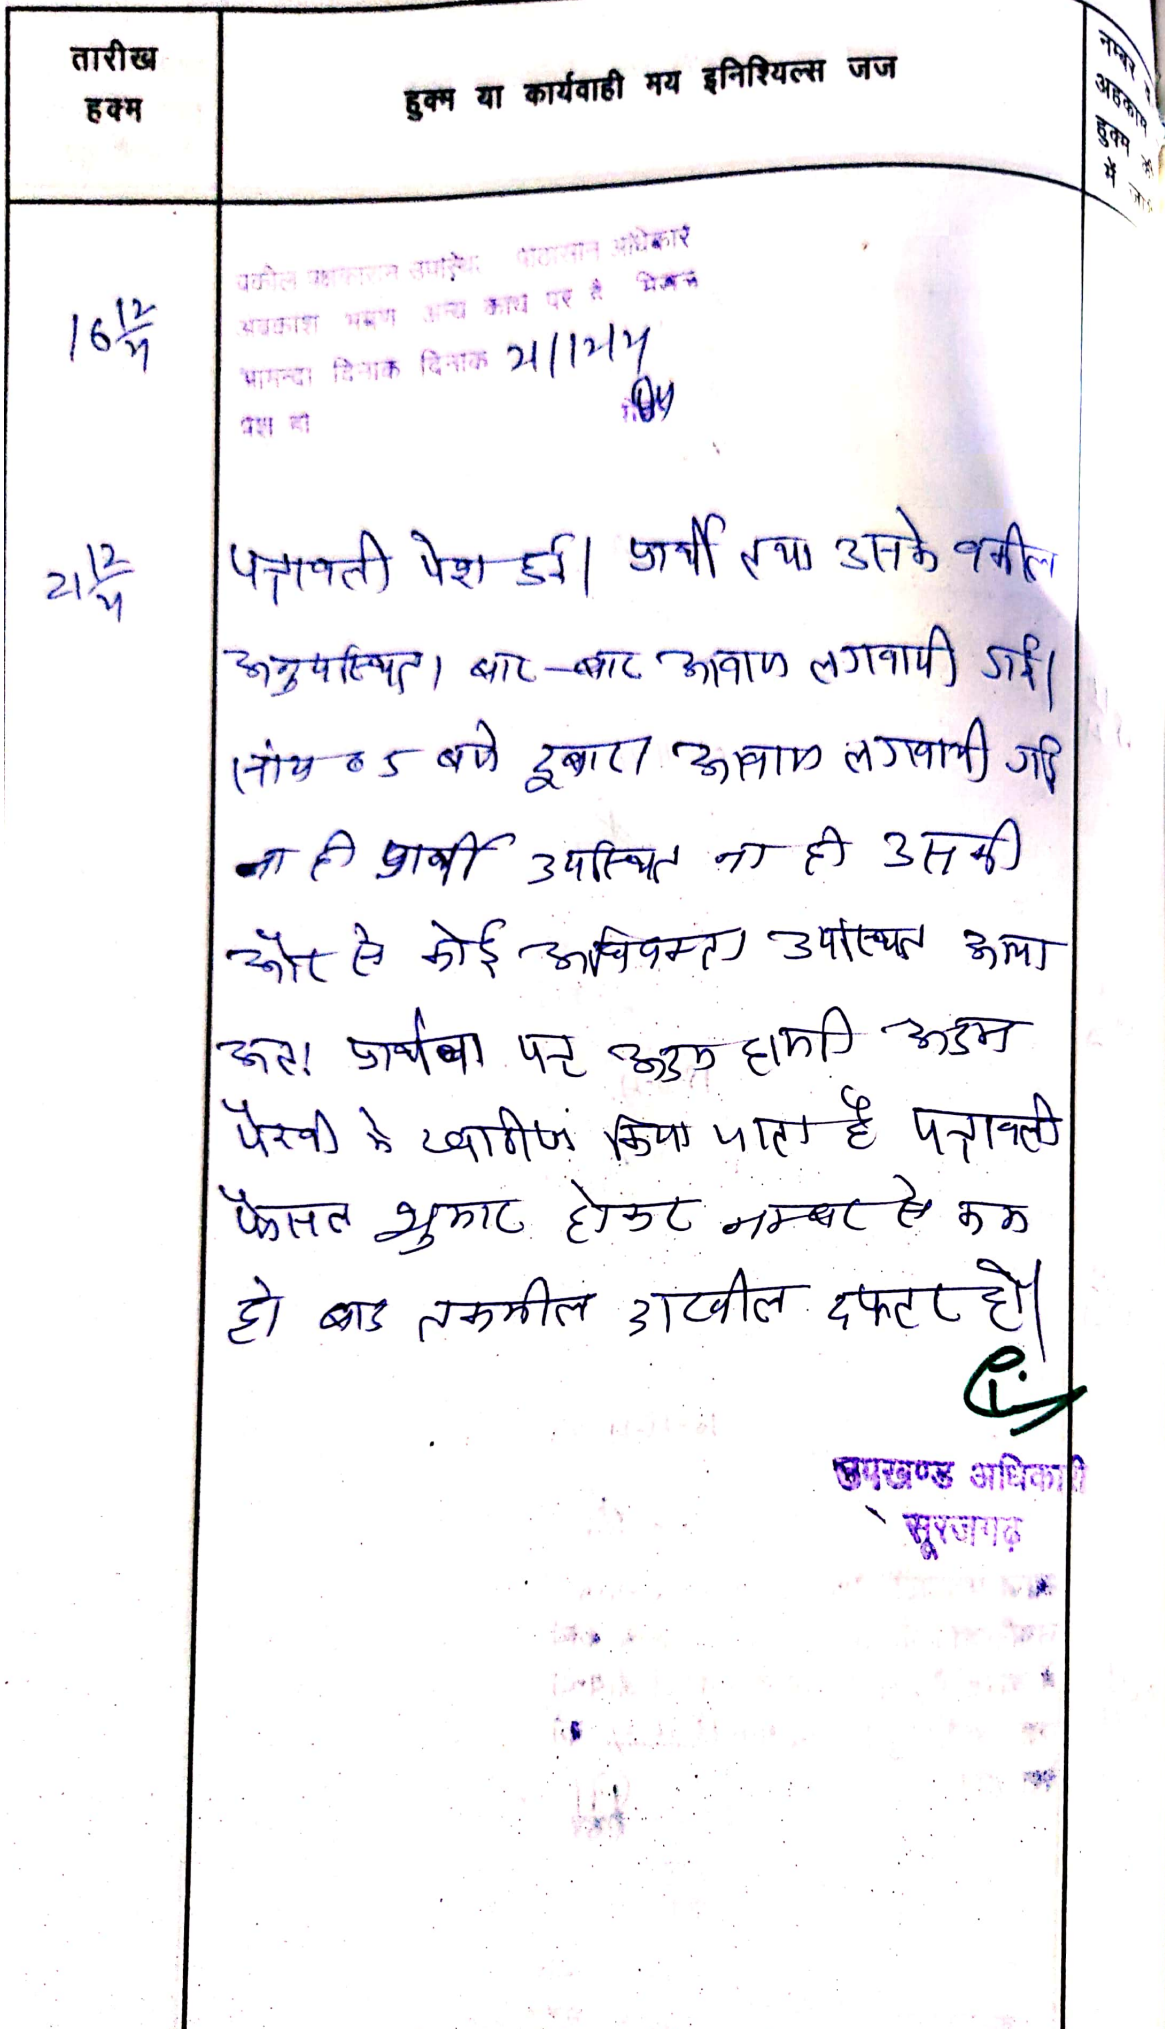 तारीख
हक्म
हुक्म या कार्यवाही मय इनिशियल्स जज
नम्बर
अहकाम
हुक्म की
में
वकील उपस्थित अधिकारी
अवकाश भ्रमण अन्य कार्य पर है
16 12
दिनांक दिनांक 21/12/
पेश हो
21 12
पत्रावली पेश हुई। प्रार्थी तथा उसके वकील
अनुपस्थित। बार-बार आवाज लगवायी गई।
सांय 5 बजे दूबारा आवाज लगवायी गई
ना ही प्रार्थी उपस्थित ना ही उसकी
और से कोई अधिवक्ता उपस्थित आया
अतः प्रार्थना पत्र अदम हाजरी अदम
पैरवी मे खारीज किया जाता है पत्रावली
फैसल शुमार होकर नम्बर से कम
हो बाद तकमील दाखील दफ्तर हो।
उपखण्ड अधिकारी
सूरजगढ़